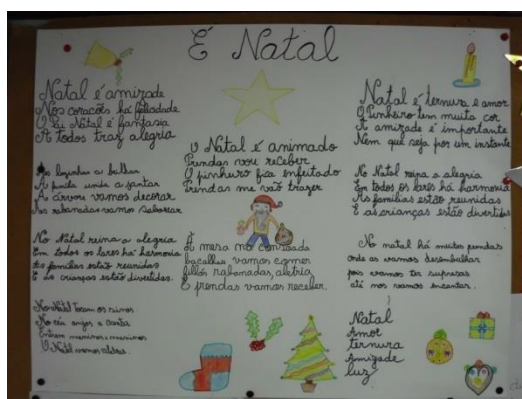 É Natal
Natal é amizade
Nos corações há felicidade
O Pai Natal é fantasia
A todos traz alegria
As luzinhas a brilhar
A família unida a jantar
A árvore vamos decorar
As rabanadas vamos saborear
No Natal reina a alegria
Em todos os lares há harmonia
As famílias estão reunidas
E as crianças estão divertidas.
No Natal tocam os sinos
No céu anjos a cantar
Entrem meninas e meninos
O Natal vamos
O Natal é animado
Prendas vou receber
O pinheiro fica enfeitado
Prendas me vão trazer
À mesa na consoada
bacalhau vamos comer
filhós rabanadas, aletria
E prendas vamos receber.
Natal é ternura e amor
O Pinheiro tem muita cor
A amizade é importante
Nem que seja por um instante
No Natal reina a alegria
Em todos os lares há harmonia
As famílias estão reunidas
E as crianças estão divertidas
No natal há muitas prendas
onde as vamos desembrulhar
pois vamos ter supresas
até nos vamos encantar.
Natal
Amor
ternura
Amizade
luz